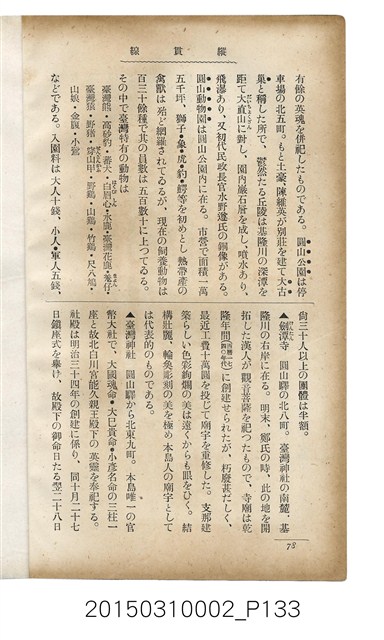 線貫縱
有餘の英魂を併祀したものである。圓山公園は停
車場の北五町。もと土豪、陳維英が別莊を建て大古
巢と稱した所で、鬱然たる丘陵は基隆川の深潭を
距て大直山に對し、園内巖石層を成し、噴水あり、
飛瀑あり、又初代民政長官水野遵氏の銅像がある。
圓山動物園は圓山公園内に在る。市營で面積一萬
五千坪、獅子・象・虎・豹・鰐等を初めとし熱帶產の
禽獸は殆ど網羅されてゐるが、現在の飼養動物は
百三十餘種で其の員數は五百數十に上つてゐる。
その中で臺灣特有の動物は
臺灣熊・高砂豹・蕃犬・白眉心・水鹿・臺灣花鹿・羌仔・
臺灣猿・野猪・穿山甲・野鷄・山鷄・竹鷄・尺八鳩・
山娘・金腹・小鶯
などである。入園料は大人十錢、小人・軍人五錢、
尙三十人以上の團體は半額。
▲劍潭寺 圓山驛の北八町。臺灣神社の南麓、基
隆川の右岸に在る。明末、鄭氏の時、此の地を開
拓した漢人が觀音菩薩を祀つたもので、寺廟は乾
隆年間に創建せられたが、朽廢甚だしく、
最近工費十萬圓を投じて廟宇を重修した。支那建
築らしい色彩絢爛の美は遠くからも眼をひく。結
構壯麗、輪奐彫刻の美を極め本島人の廟宇として
は代表的のものである。
▲臺灣神社 圓山驛から北東九町。本島唯一の官
幣大社で、大國魂命・大巳貴命・小彥名命の三柱一
座と故北白川宮能久親王殿下の 英靈を奉祀する。
社殿は明治三十四年の創建に係り、同十月二十七
日鎭座式を擧げ、故殿下の御命日たる翌二十八日
73
20150310002_P133